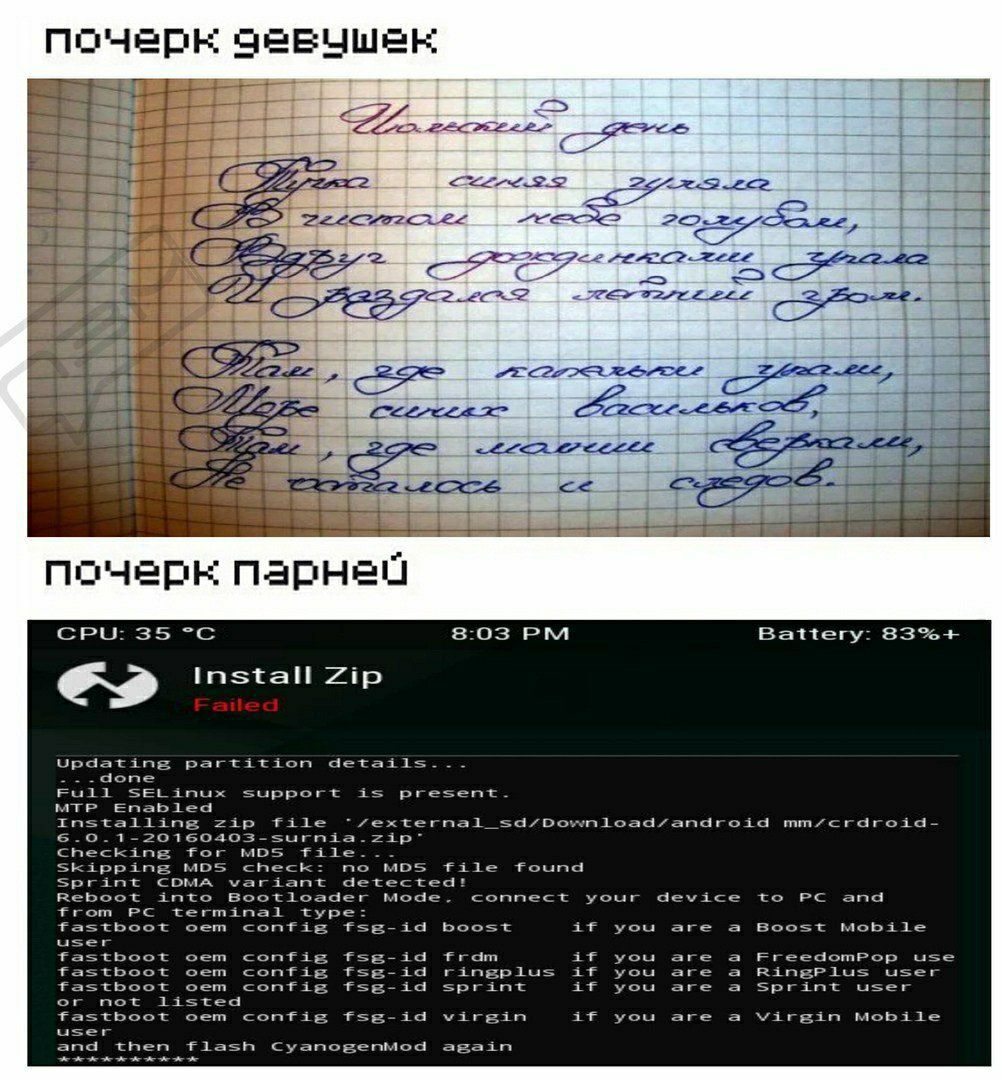 почерк девушек
Июльский день
Тучка синяя гуляла
В чистом небе голубом,
Вдруг дождинками упала
И раздался летний гром.
Там, где капельки упали,
Море синих васильков,
Там, где молнии сверкали,
Не осталось и следов.
почерк парней
CPU: 35 °C 8:03 PM Battery: 83%+
Install Zip
Failed
Updating partition details...
...done
Full SELinux support is present.
MTP Enabled
Installing zip file '/external_sd/Download/android mm/crdroid-
6.0.1-20160403-surnia.zip'
Checking for MD5 file...
Skipping MD5 check: no MD5 file found
Sprint CDMA variant detected!
Reboot into Bootloader Mode, connect your device to PC and
from PC terminal type:
fastboot oem config fsg-id boost if you are a Boost Mobile
user
fastboot oem config fsg-id frdm if you are a FreedomPop use
fastboot oem config fsg-id ringplus if you are a RingPlus user
fastboot oem config fsg-id sprint if you are a Sprint user
or not listed
fastboot oem config fsg-id virgin if you are a Virgin Mobile
user
and then flash CyanogenMod again
**********